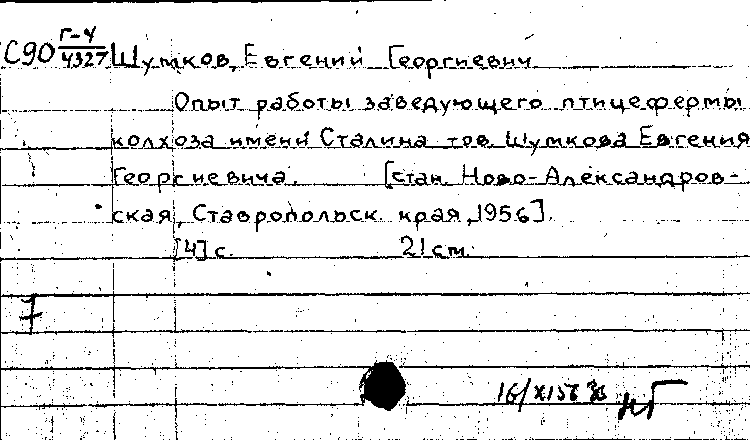 С90 Г-4/4327 Шумков, Евгений Георгиевич
Опыт работы заведующего птицефермы
колхоза имени Сталина тов. Шумкова Евгения
Георгиевича. [стан. Ново-Александров-
ская, Ставропольск. края, 1956].
[4] с. 21 см.
7